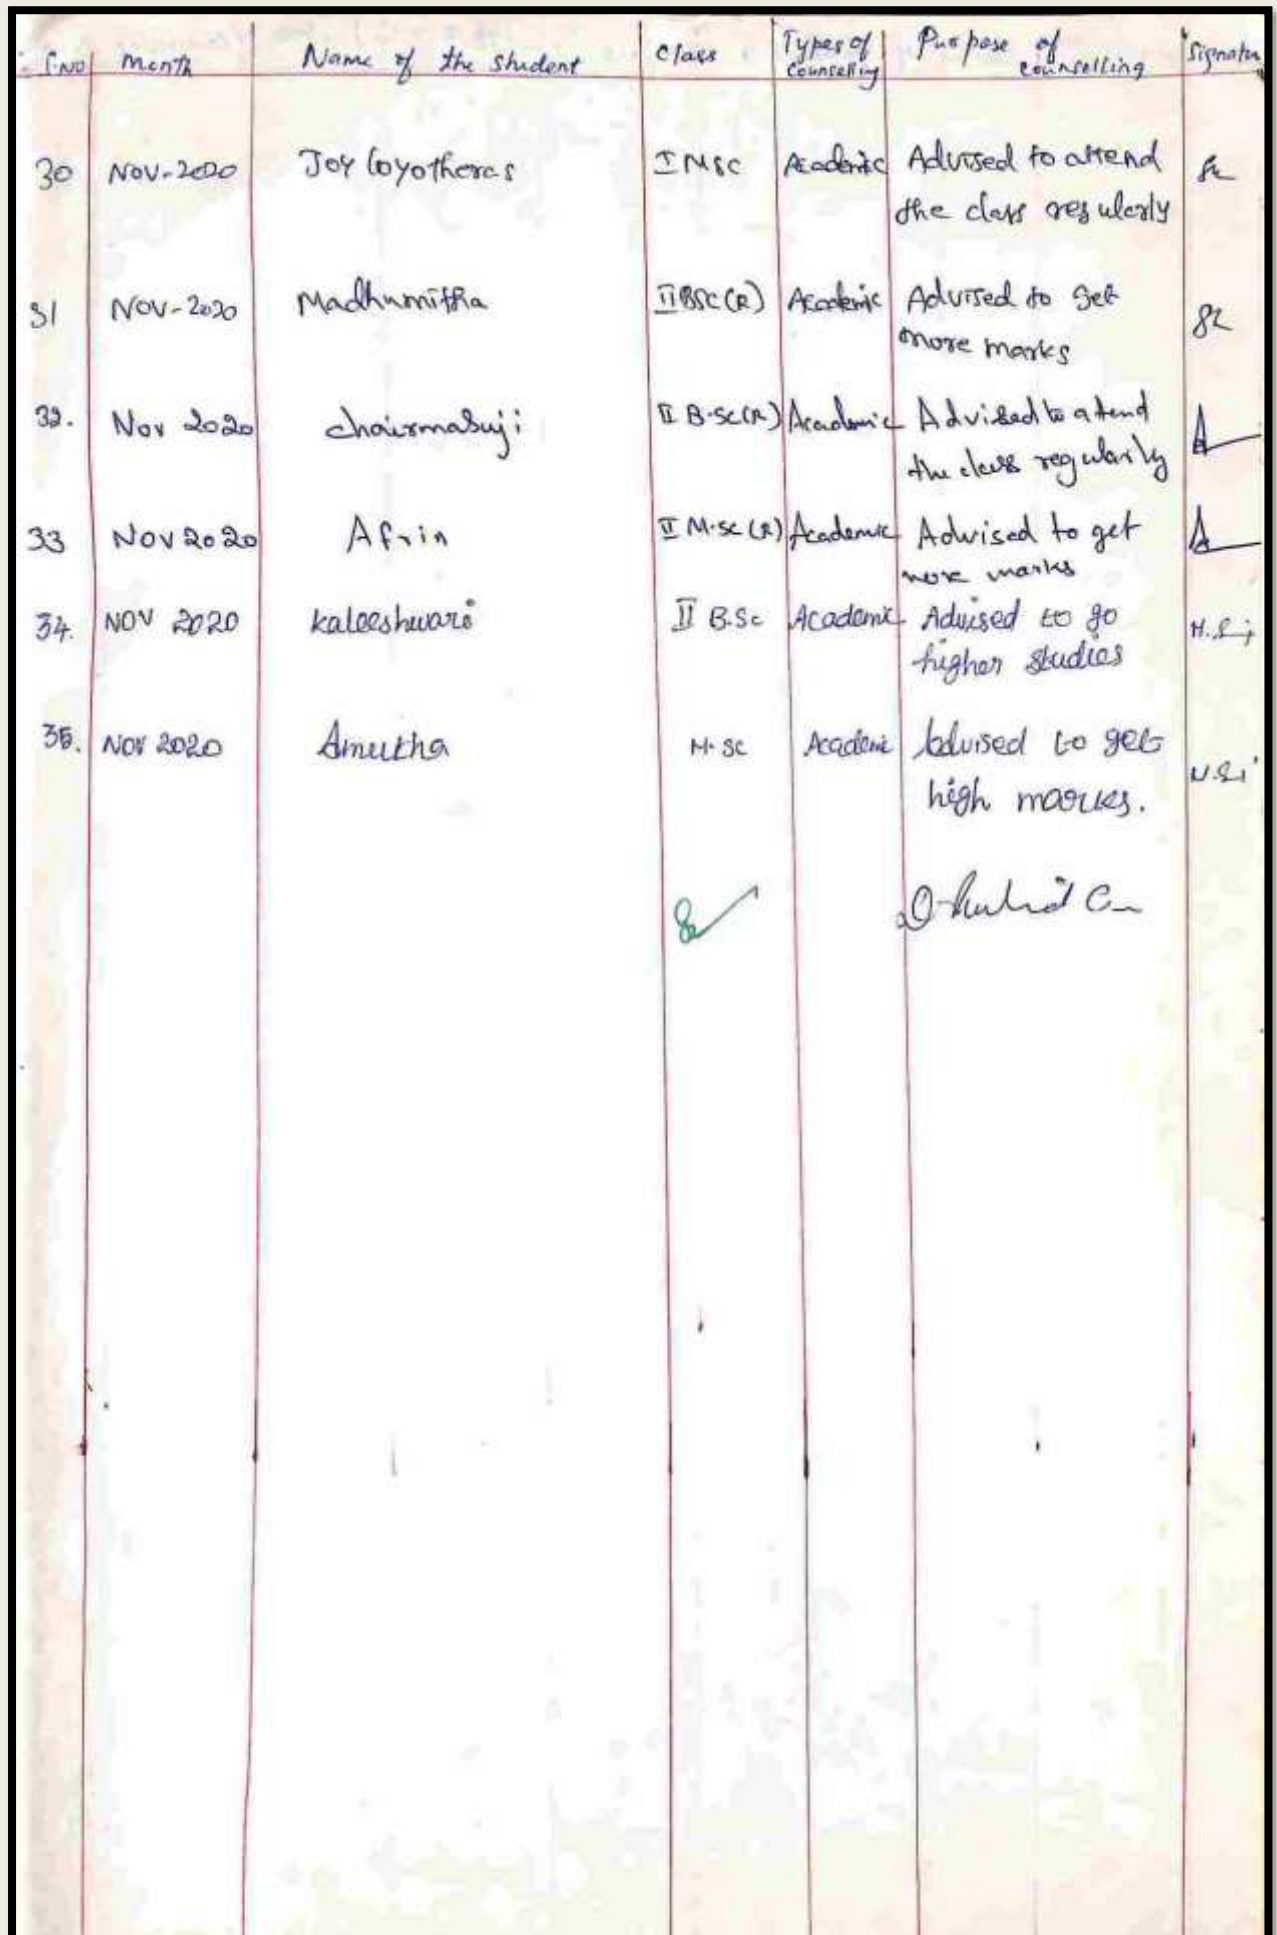 S.NO Month Name of the student Class Types of Counselling Purpose of counselling Signatu
30 NOV-2020 Joy loyotheras I MSC Academic Advised to attend
the class regularly
31 NOV-2020 Madhumitha II BSC (R) Academic Advised to get
more marks
32. Nov 2020 II B.SC(R) Academic Advised to attend
the class regularly
33 Nov 2020 Afrin II M.SC (R) Academic Advised to get
more marks
34. NOV 2020 Kaleeshwari II B.Sc Academic Advised to go
higher studies
35. NOV 2020 Amutha M.SC Academic Advised to get
high marks.